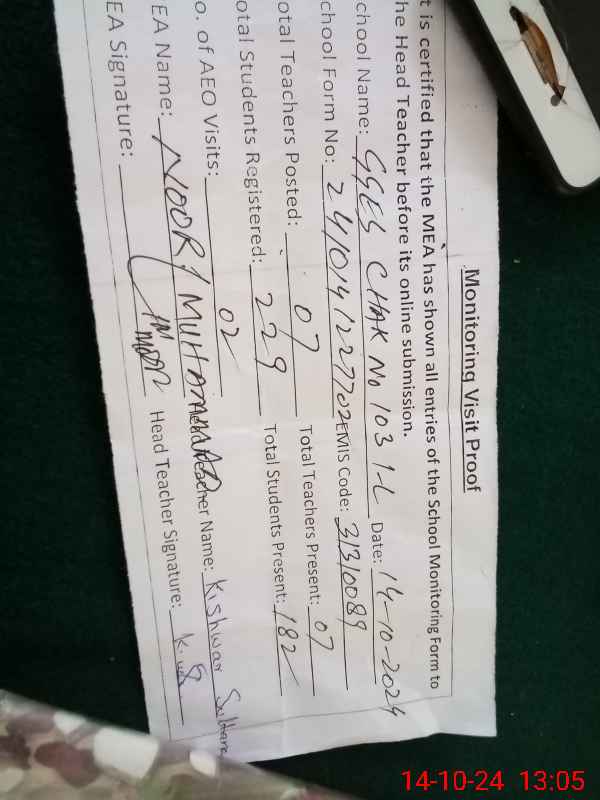 Monitoring Visit Proof
t is certified that the MEA has shown all entries of the School Monitoring Form to
he Head Teacher before its online submission.
chool Name: GGES CHAK No 103 1-L Date: 14-10-2024
chool Form No: 241014122770 EMIS Code: 31310089
otal Teachers Posted: 07 Total Teachers Present: 07
otal Students Registered: 229 Total Students Present: 182
o. of AEO Visits: 02
EA Name: NOOR MUHAMMAD Head Teacher Name: Kishwar Sultana
EA Signature: Head Teacher Signature:
14-10-24 13:05